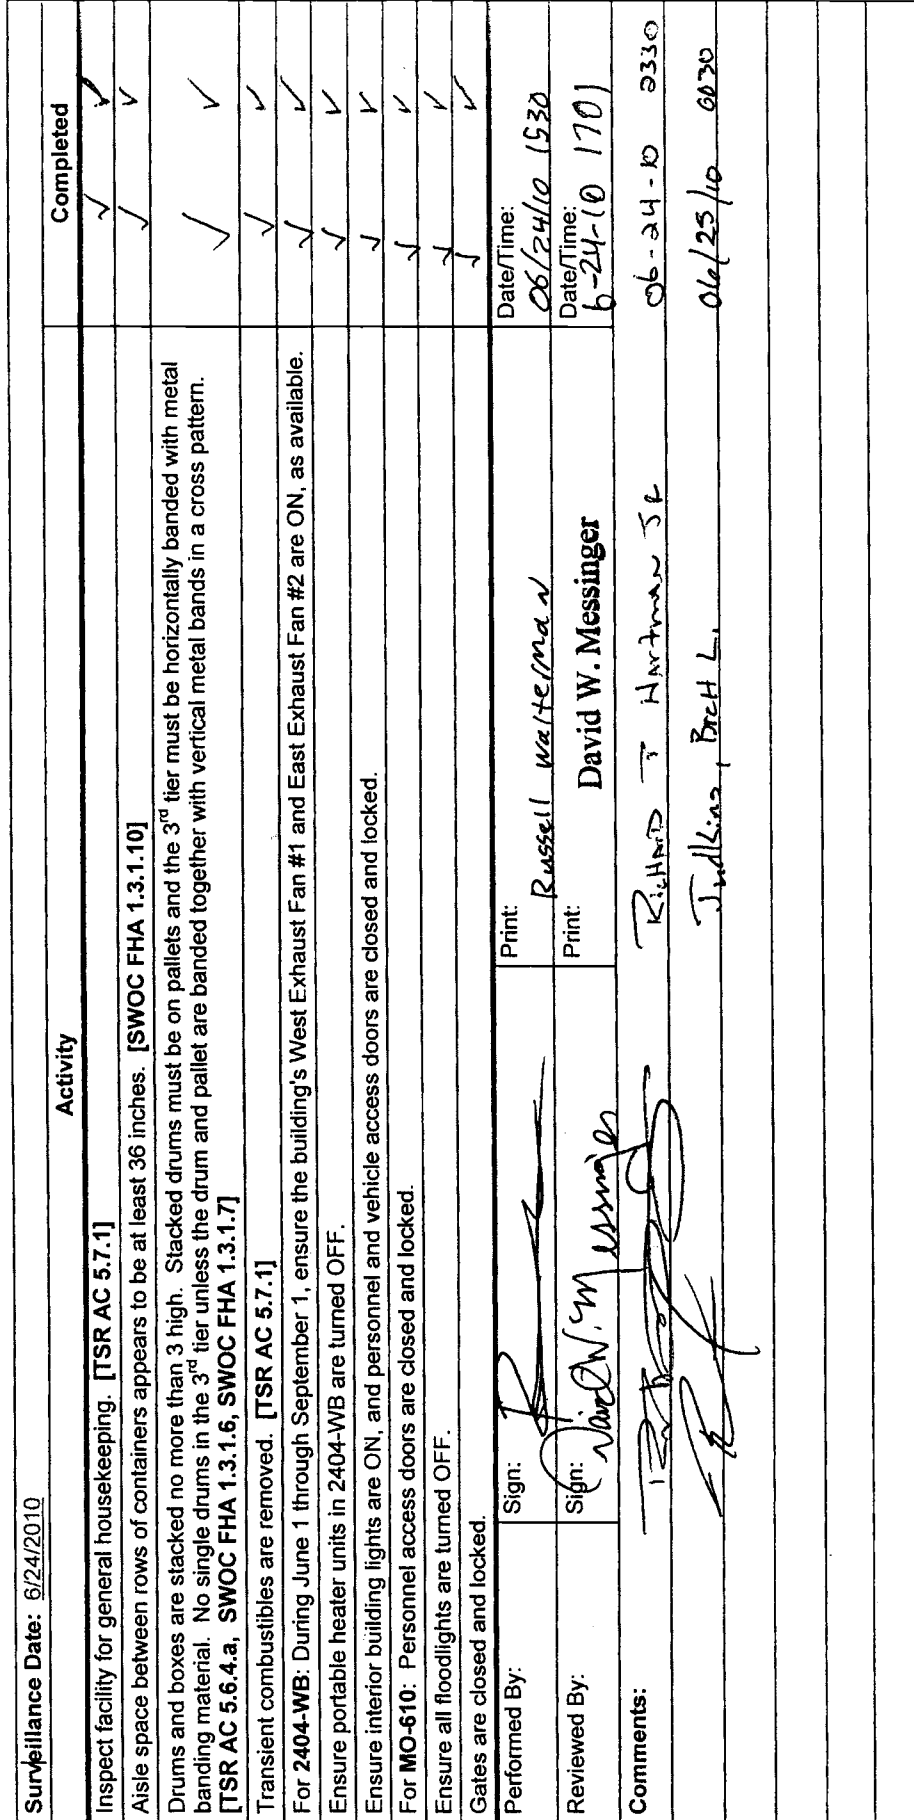 Surveillance Date: 6/24/2010
Activity
Completed
Inspect facility for general housekeeping. [TSR AC 5.7.1] ✓ ✓
Aisle space between rows of containers appears to be at least 36 inches. [SWOC FHA 1.3.1.10] ✓ ✓
Drums and boxes are stacked no more than 3 high. Stacked drums must be on pallets and the 3rd tier must be horizontally banded with metal
banding material. No single drums in the 3rd tier unless the drum and pallet are banded together with vertical metal bands in a cross pattern.
[TSR AC 5.6.4.a, SWOC FHA 1.3.1.6, SWOC FHA 1.3.1.7] ✓ ✓
Transient combustibles are removed. [TSR AC 5.7.1] ✓ ✓
For 2404-WB: During June 1 through September 1, ensure the building's West Exhaust Fan #1 and East Exhaust Fan #2 are ON, as available. ✓ ✓
Ensure portable heater units in 2404-WB are turned OFF. ✓ ✓
Ensure interior building lights are ON, and personnel and vehicle access doors are closed and locked. ✓ ✓
For MO-610: Personnel access doors are closed and locked. ✓ ✓
Ensure all floodlights are turned OFF. ✓ ✓
Gates are closed and locked. ✓ ✓
Performed By: Sign: Print: Russell Walterman Date/Time: 06/24/10 1530
Reviewed By: Sign: David W. Messinger Print: David W. Messinger Date/Time: 6-24-10 1701
Comments: Richard T Hartman Jr 06-24-10 2330
Judkins, Brett L. 06/25/10 0030